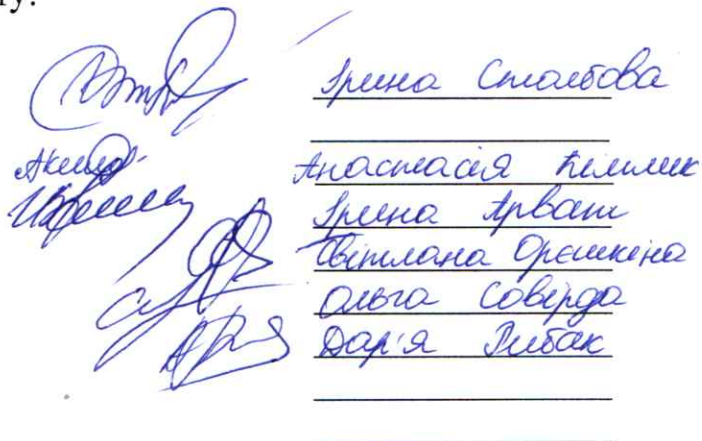 ту.
Ірина Столбова
Анастасія Кілимик
Ірина Арват
Світлана Орєшкіна
Ольга Совірда
Дар'я Рибак